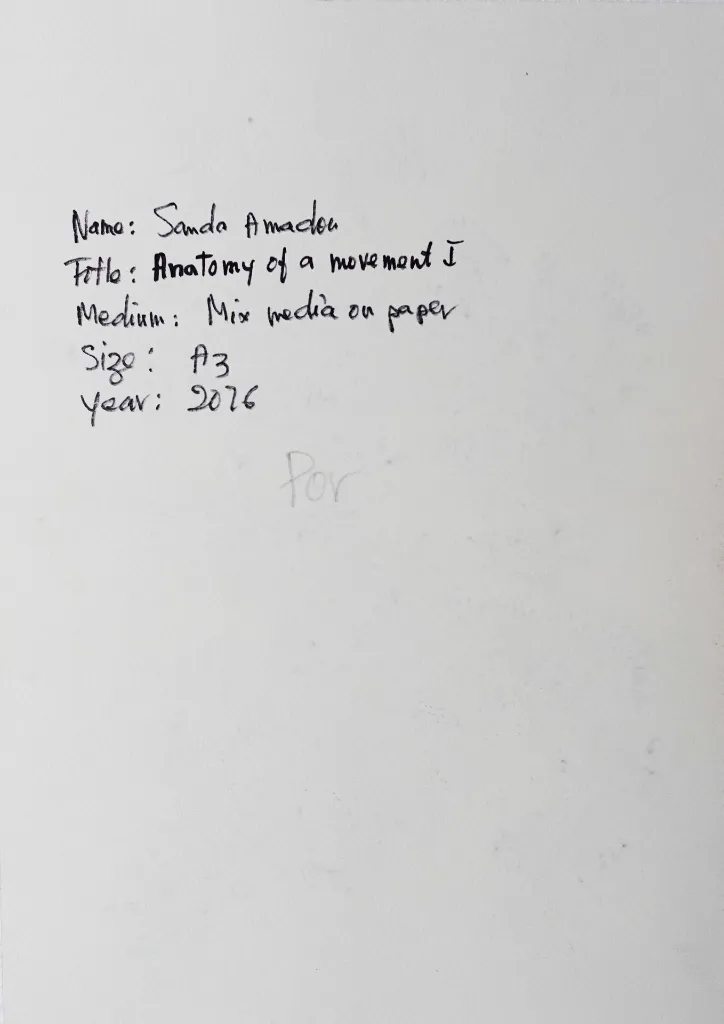 Name: Sanda Amadou
Title: Anatomy of a movement I
Medium: Mix media on paper
Size: A3
year: 2016
Por